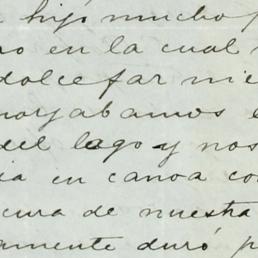 hijo mucho
en la cual
dolce far nie
del lago y nos
ia en canoa co
cura de nuestra
amente duró p